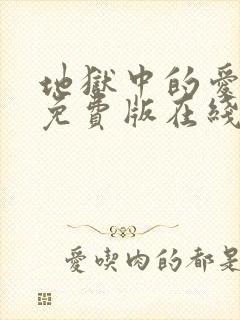 地獄中的愛
免費版在綫
愛喫肉的都是